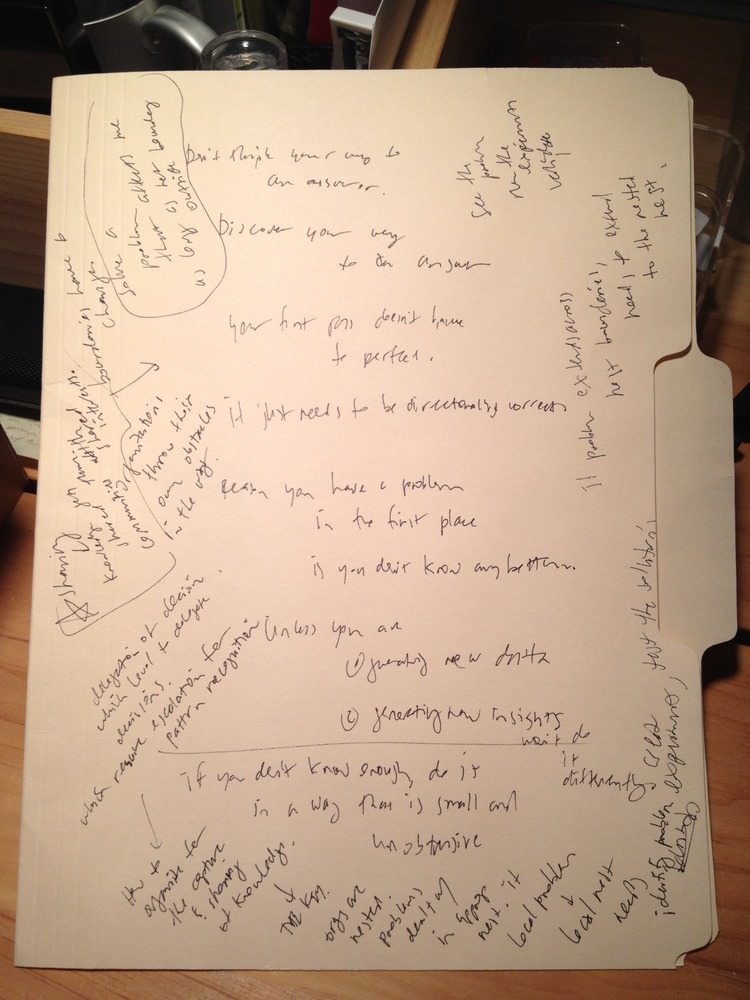 Don't think your way to
an answer.
Discover your way
to the answer
Your first pass doesn't have
to perfect.
it just needs to be directionally correct
reason you have a problem
in the first place
is you don't know any better.
Unless you are
① generating new data
② generating new insights
wait do
it
differently
if you don't know enough, do it
in a way that is small and
unobtrusive
solve a
problem affects me
that as test boundary
as long outside
see the
problem
the
new experiments
validate
if problem extends across
nest boundaries,
needs to extend
to the nested
nest.
sharing
knowledge gets
shared
communities
boundaries have to
change
organizations
throw their
own obstacles
in the way.
delegation of decision
which level to delegate
decisions.
which require escalation for
pattern recognition
How to
organize for
the capture
& sharing
of knowledge.
↓
THE KEY.
orgs are
nested.
Problems
dealt w/
in
nest. if
local problem
↓
local nest
needs
identify problem
experiments, test the solution,